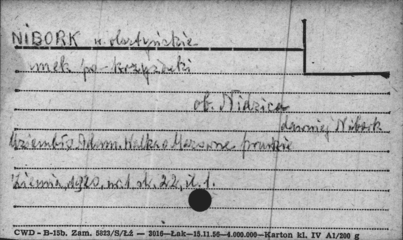 NIBORK w. olsztyńskie
zamek po-krzyżacki
ob. Nidzica
dawniej Nibork
Dziembło Adam. Walka o Mazowsze pruskie
Ziemia, 1920, nr. 1. sk. 22, il. 1.
CWD - B-15b. Zam. 5823/S/Łż — 2016—Łak—15.11.56—4.000.000—Karton kl. IV A1/200 g